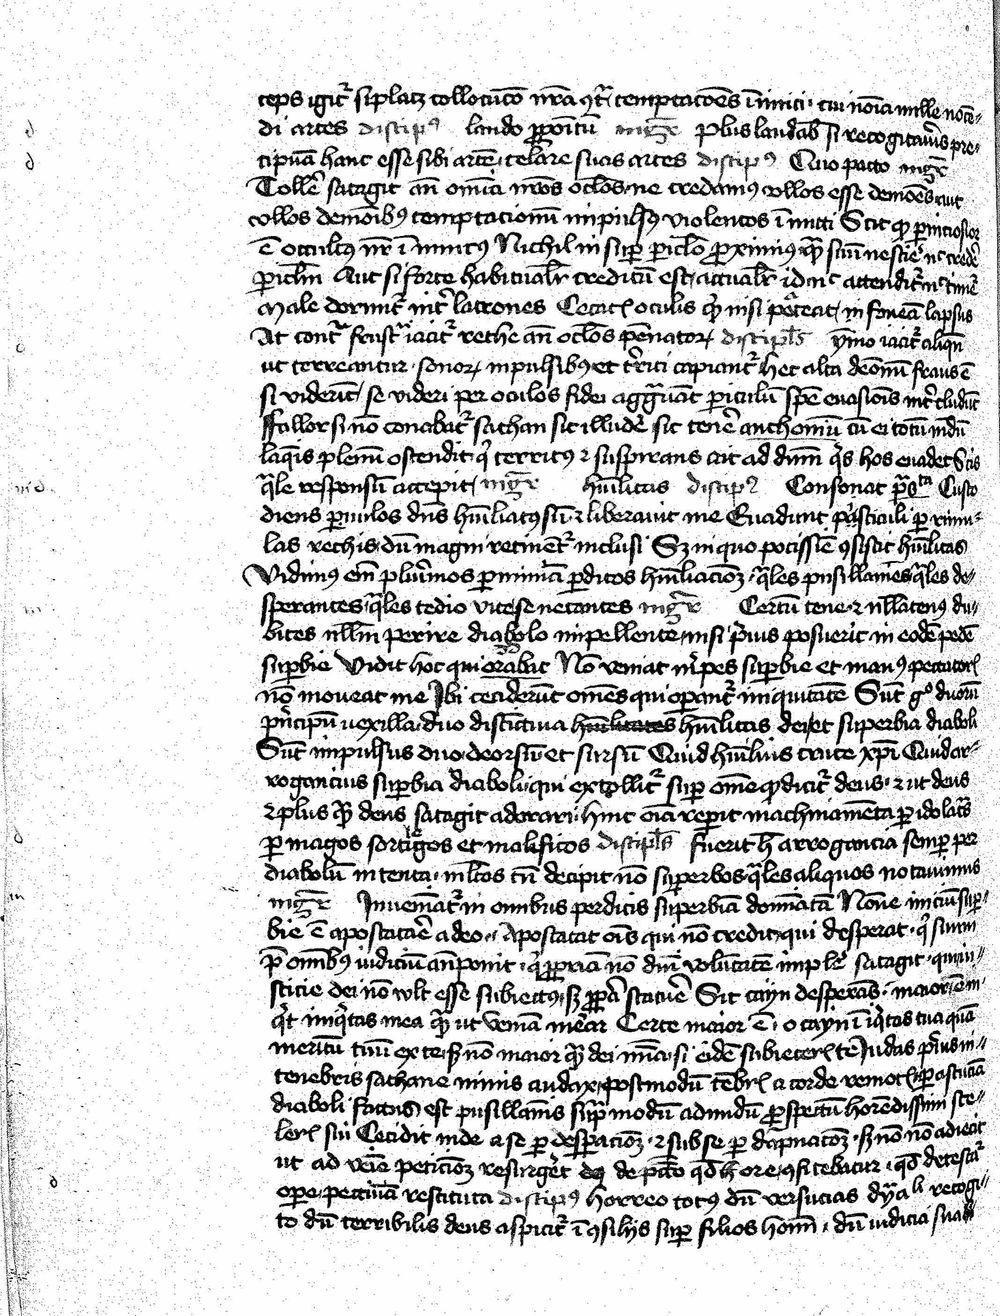 ceps igitr si placz collocuco nra qtra temptacoes inimici cui noia mille noce
di artes discipus laudo propoitu mgr Plus laudab si recogitaueris pre
cipua hanc esse sibi arte celare suas artes discipus Quo pacto mgr
Tollere satagit an omnia nros oclos ne credamus vllos esse demoes aut
vllos demoibus temptacionum impulsus violentos immitti Scit q pernitiosior
e occultus nr inimicus Nichil insuper periclo proximius qua suum nescire nec credere
periclm Aut si forte habitualr creditu est actualr id nec attenditr nec timere
Male dormitr inter latrones Cecatis oculis quis nisi pereat in foueam lapsus
At contra frustra iacitr rethe an oclos pennatorum discipls ymo iacitr aliqn
ut terreantur sonorum inpulsibus et territi capiantr hec alta demonum fraus e
si viderint se videri per oculos fidei aggrauant periculu spem euasiois intercludut
Fallor si no conabatr sathan sic illudere sic tenere anthoniu cu ei totum mudu
laqis plenum ostendit qi territus et suspirans ait ad dnm qis hos euadet Scis
qale responsu accepit mgr humilitas discipus Consonat psta Custo
diens paruulos dns humiliatus su et liberauit me Euadunt pisciculi per rimu
las rethis du magni retinentr inclusi Sz in quo potissime consistit humilitas
Vidimus em plurimos pernimia perditos humiliacioz qales pusillanimes qales de
sperantes qales tedio vite se necantes mgr Certum tene et nullatenus du
bites nllm perire diabolo impellente nisi prius posuerit in eode pede
superbie Vidit hoc qui orabat No veniat mi pes superbie et manus peccatoris
no moueat me Ibi ceciderut omes qui operantr iniquitate Sut go duoru
pncipu vexilla duo distinctiua humilitas dei et superbia diaboli
Sut impulsus duo deorsu et sursu Quid humilius cruce xpi Quid ar
rogancius superbia diaboli qui extollitr super ome q dicitr deus et ut deus
et plus qua deus satagit adorari hinc oia reperit machinamenta per idolatras
per magos sortilegos et maleficos discipls fuerit hec arrogancia semper per
diabolum intenta mltos tn decipit no superbos qales aliquos notauimus
mgr Inuematr in omnibus perditis superbia dominata None iniciu super
bie e apostatare a deo Apostatat ois qui no credit qui desperat qi suum
pre omibus iudiciu anponit qi propria no diui voluntate implere satagit qui iu
sticie dei no vlt esse subiectus sz propria statuere Sic cayn desperas maior e in
qit iniqitas mea qua ut venia merear Certe maior e o cayn iniqitas tua qua
meritu tuu ex te sz no maior qua dei mia si eidem subieceris te Judas prius in
tenebris sathane nimis audax postmodu tenebris a corde remotis per astucia
diaboli factus est pusillanis supra modu admodu prospectu horedissimi sce
leris sui Cecidit inde a se per desperacoz et sub se per dapnacoz sz no no adiecit
ut ad venie peticioz resurgeret de pcto qd hore confitebatur qd detestatr
ope pecunia restituta discipus horreo totus du versucias dyali recogi
to du terribilis deus aspicitr in consilijs super filios hoim du iudicia sua